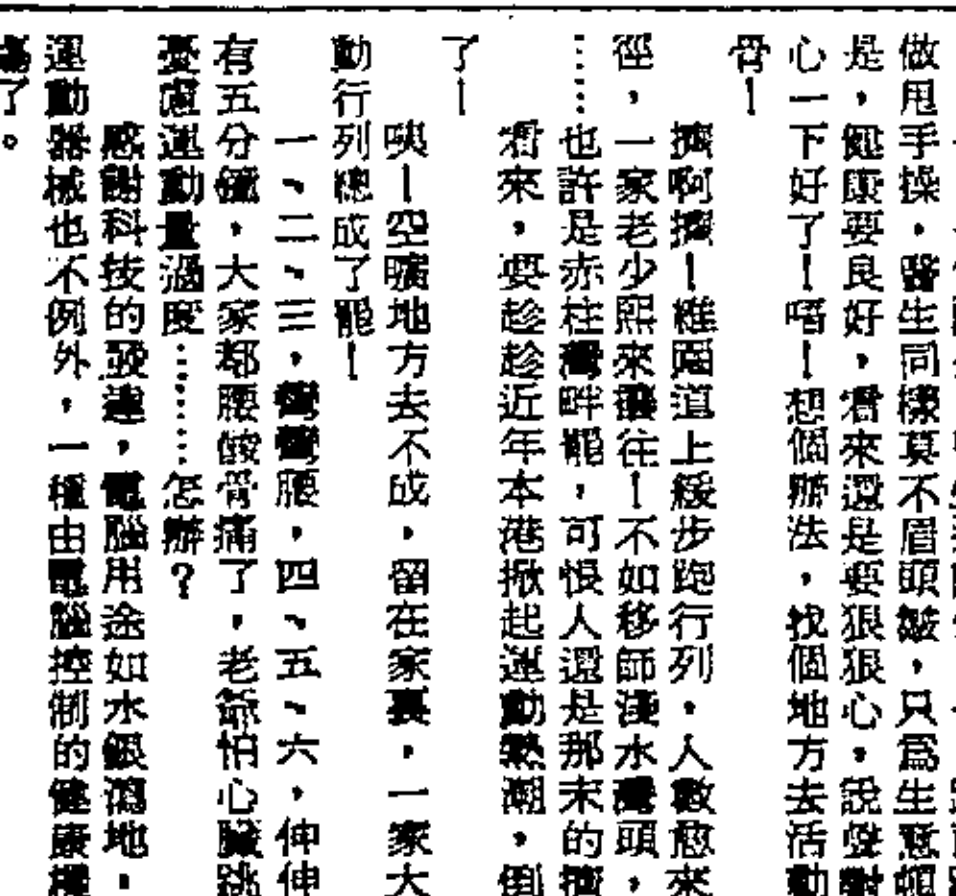 做甩手操,醫生同樣莫不眉頭皺,只爲生意頓
是,健康要良好,看來還是要狠狠心,說聲對
心一下好了!唔!想個辦法,找個地方去活動
骨!
擠啊擠!維園道上緩步跑行列,人數愈來
徑,一家老少熙來攘往!不如移師淺水灣頭,
……也許是赤柱灣畔罷,可恨人還是那末的擠
看來,要趁趁近年本港掀起運動熱潮,倒
了!
唉!空曠地方去不成,留在家裏,一家大
動行列總成了罷!
一、二、三,彎彎腰,四、五、六,伸伸
有五分鐘,大家都腰酸骨痛了,老爺怕心臟跳
憂慮運動量過度………怎辦?
感謝科技的發達,電腦用途如水銀瀉地,
運動器械也不例外,一種由電腦控制的健康機
了。